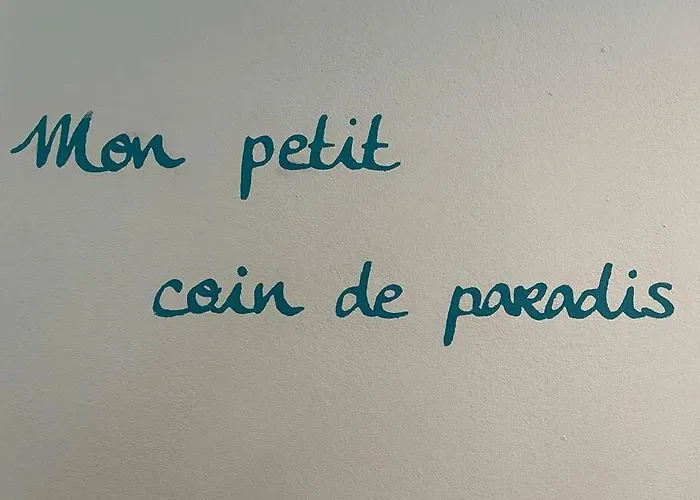 Mon petit
coin de paradis